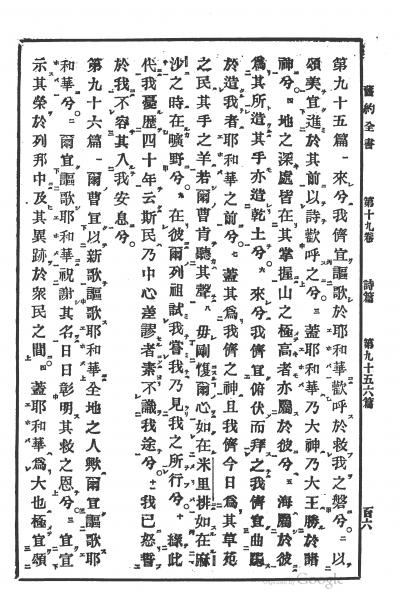 舊約全書 第十九卷 詩篇 第九十五六篇 百六
第九十五篇 一來兮我儕宜謳歌於耶和華歡呼於救我之磐兮二以
頌美宜進於其前以詩歡呼之兮三蓋耶和華乃大神乃大王勝於諸
神兮四地之深處皆在其掌握山之極高者亦屬於彼兮五海屬於彼
爲其所造其手亦造乾土兮六來兮我儕宜俯伏而拜之我儕宜曲跽
於造我者耶和華之前兮七蓋其爲我儕之神且我儕今日爲其草苑
之民其手之羊若爾曹肯聽其聲八毋剛愎爾心如在米里排如在麻
沙之時在曠野兮九在彼爾列祖試我嘗我乃見我之所行兮十緣此
代我憂歷四十年云斯民乃中心差謬者素不識我途兮十一我已怒誓
於我不容其入我安息兮
第九十六篇 一爾曹宜以新歌謳歌耶和華全地之人歟爾宜謳歌耶
和華兮二爾宜謳歌耶和華祝謝其名日日彰明其救之恩兮三宜宣
示其榮於列邦中及其異跡於衆民之間四蓋耶和華爲大也極宜頌
Digitized by Google